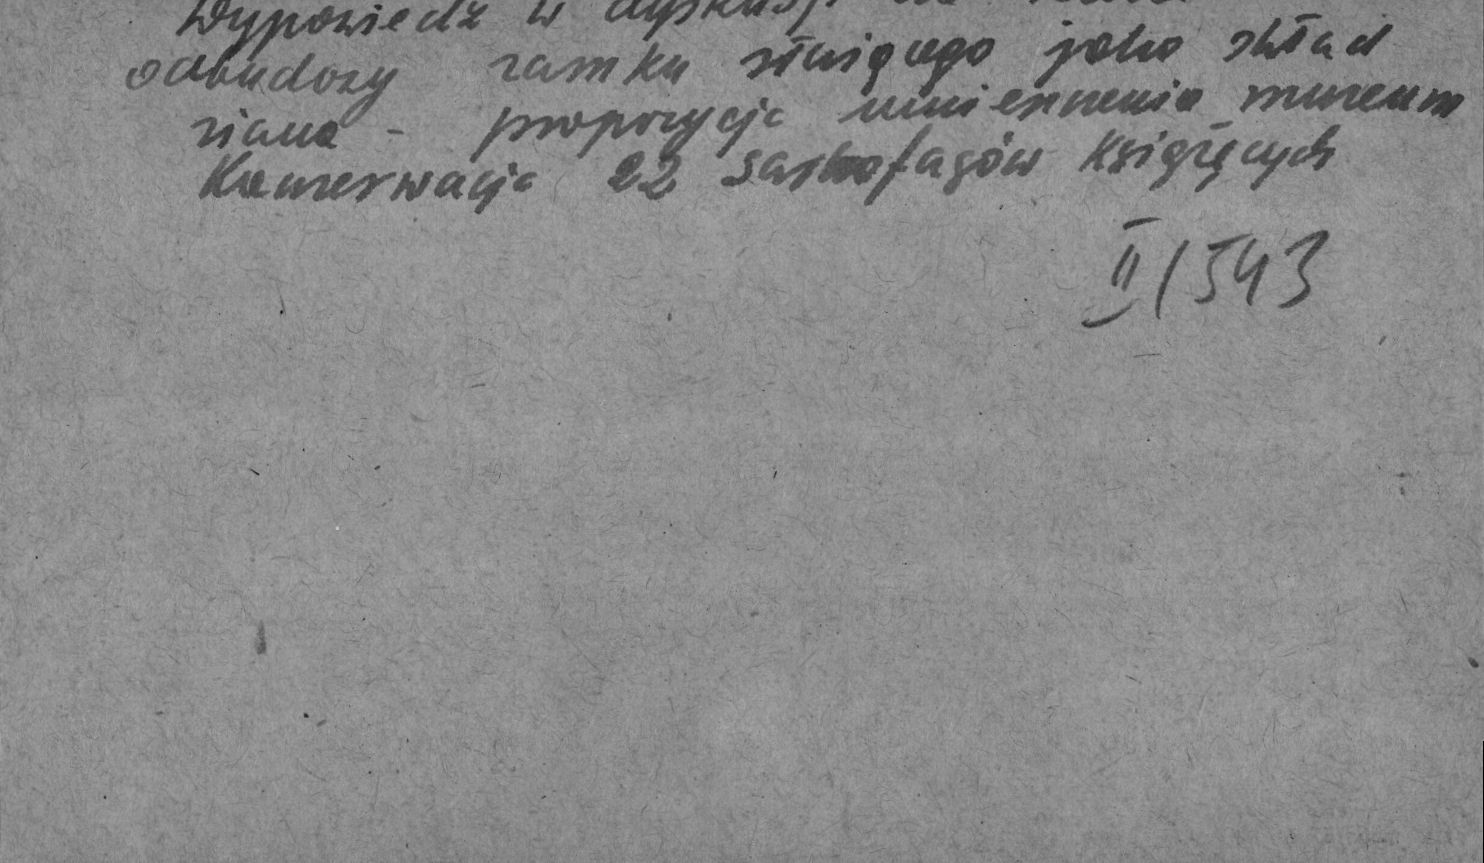 Wypowiedź w dyskusji na
odbudowy zamku służącego jako skład
siana - propozycja umieszczenia muzeum
Konserwacja 22 sarkofagów książęcych
II/543